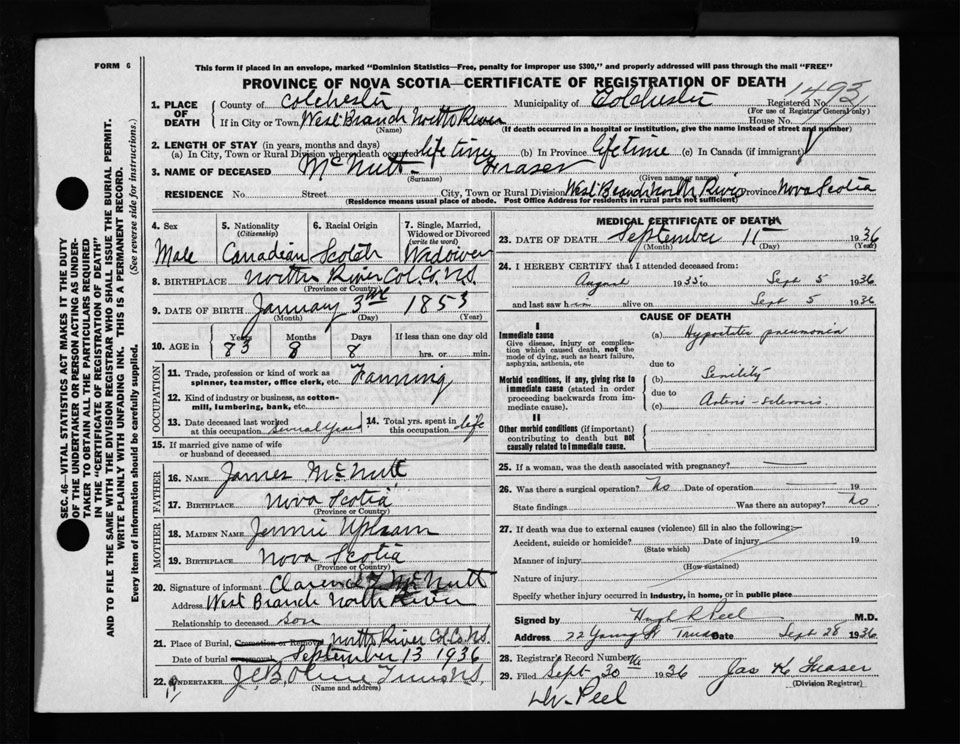 FORM 6
This form if placed in an envelope, marked "Dominion Statistics—Free, penalty for improper use $300," and properly addressed will pass through the mail "FREE"
PROVINCE OF NOVA SCOTIA—CERTIFICATE OF REGISTRATION OF DEATH
1. PLACE OF DEATH
County of Colchester Municipality of Colchester Registered No. 1493
(For use of Registrar General only)
If in City or Town West Branch North River House No.
(Name) (If death occurred in a hospital or institution, give the name instead of street and number)
2. LENGTH OF STAY (in years, months and days)
(a) In City, Town or Rural Division where death occurred life time (b) In Province lifetime (c) In Canada (if immigrant)
3. NAME OF DECEASED McNutt Fraser
(Surname) (Given name or names)
RESIDENCE No. Street City, Town or Rural Division West Branch North River Province Nova Scotia
(Residence means usual place of abode. Post Office Address for residents in rural parts not sufficient)
4. Sex Male
5. Nationality (Citizenship) Canadian
6. Racial Origin Scotch
7. Single, Married, Widowed or Divorced (write the word) Widower
8. BIRTHPLACE North River Col. Co. N.S.
(Province or Country)
9. DATE OF BIRTH January 3rd 1853
(Month) (Day) (Year)
10. AGE in Years 83 Months 8 Days 8 If less than one day old hrs. or min.
OCCUPATION
11. Trade, profession or kind of work as spinner, teamster, office clerk, etc. Farming
12. Kind of industry or business, as cotton-mill, lumbering, bank, etc.
13. Date deceased last worked at this occupation several years
14. Total yrs. spent in this occupation life
15. If married give name of wife or husband of deceased
FATHER
16. NAME James McNutt
17. BIRTHPLACE Nova Scotia
(Province or Country)
MOTHER
18. MAIDEN NAME Jennie Upham
19. BIRTHPLACE Nova Scotia
(Province or Country)
20. Signature of informant Clarence McNutt
Address West Branch North River
Relationship to deceased son
21. Place of Burial, Cremation or Removal North River Col. Co. N.S.
Date of burial or removal September 13 1936
22. UNDERTAKER
(Name and address)
MEDICAL CERTIFICATE OF DEATH
23. DATE OF DEATH September 11th 1936
(Month) (Day) (Year)
24. I HEREBY CERTIFY that I attended deceased from:
August 1935 to Sept 5 1936
and last saw him alive on Sept 5 1936
CAUSE OF DEATH
I
Immediate cause
Give disease, injury or complication which caused death, not the mode of dying, such as heart failure, asphyxia, asthenia, etc
(a) Hypostatic pneumonia
due to
Morbid conditions, if any, giving rise to immediate cause (stated in order proceeding backwards from immediate cause).
(b) Senility
due to
(c) Arterio-sclerosis
II
Other morbid conditions (if important) contributing to death but not causally related to immediate cause.
25. If a woman, was the death associated with pregnancy?
26. Was there a surgical operation? No Date of operation 19
State findings Was there an autopsy? No
27. If death was due to external causes (violence) fill in also the following:
Accident, suicide or homicide? Date of injury 19
(State which)
Manner of injury
(How sustained)
Nature of injury
Specify whether injury occurred in industry, in home, or in public place
Signed by Hugh R Peel M.D.
Address 22 Young St Truro Date Sept 28 1936
28. Registrar's Record Number
29. Filed Sept 30th 1936 Jas K Fraser
(Division Registrar)
Dr. Peel
SEC. 46—VITAL STATISTICS ACT MAKES IT THE DUTY
OF THE UNDERTAKER OR PERSON ACTING AS UNDER-
TAKER TO OBTAIN ALL THE PARTICULARS REQUIRED
IN THE "CERTIFICATE OF REGISTRATION OF DEATH"
AND TO FILE THE SAME WITH THE DIVISION REGISTRAR WHO SHALL ISSUE THE BURIAL PERMIT.
WRITE PLAINLY WITH UNFADING INK. THIS IS A PERMANENT RECORD.
Every item of information should be carefully supplied. (See reverse side for instructions.)